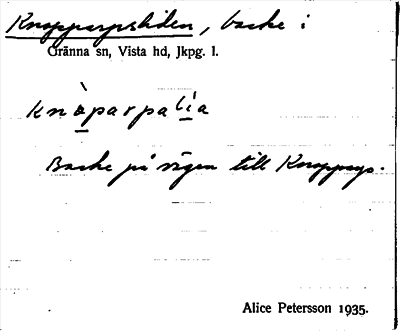 Knopparpsliden, backe i
Gränna sn, Vista hd, Jkpg. l.
knàparpalìa
Backe på vägen till Knopparp.
Alice Petersson 1935.